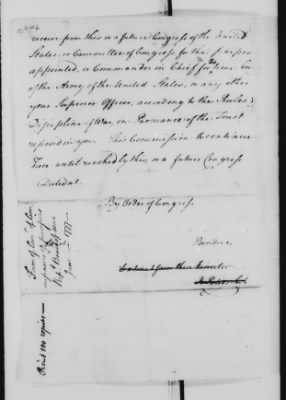 receive from this or a future Congress of the United
States, or Committee of Congress for that purpose
appointed, or Commander in Chief for the time being
of the Army of the United States, or any other
your Superior Officer, according to the Rules &
Discipline of War, in Pursuance of the Trust
reposed in you. This Commission to continue in
Force until revoked by this, or a future Congress
Dated at
By Order of Congress
President
Form of
Jany 1777
Print 500 copies